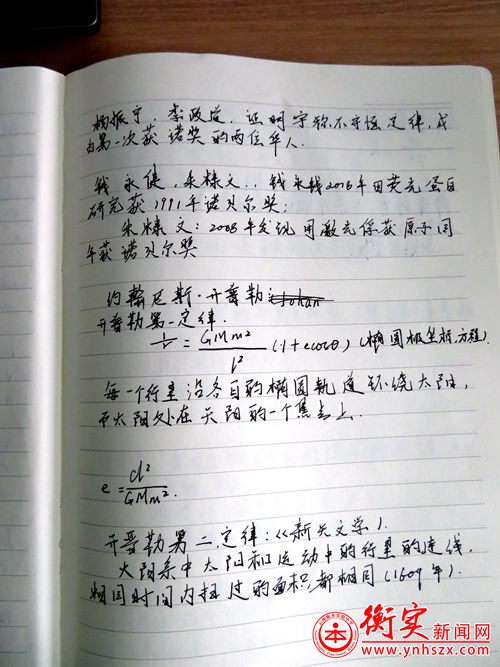 杨振宁，李政道，证明宇称不守恒定律，成
为第一次获诺奖的两位华人.
钱永健，朱棣文.，钱永钱2018年因荧光蛋白
研究获1991年诺贝尔奖；
朱棣文：2008年发现用激光保获原子同
年获诺贝尔奖
约翰尼斯·开普勒：Johan
开普勒第一定律.
1/r = GMm²/l² (1+ecosθ) (椭圆极坐标.方程).
每一个行星沿各自的椭圆轨道环绕太阳，
而太阳处在天阳的一个焦点上.
e = cl²/GMm².
开普勒第二定律：《新天文学》.
太阳系中太阳和运动中的行星的连线，
相同时间内扫过的面积都相同(1609年).
衡实新闻网
www.ynhszx.com